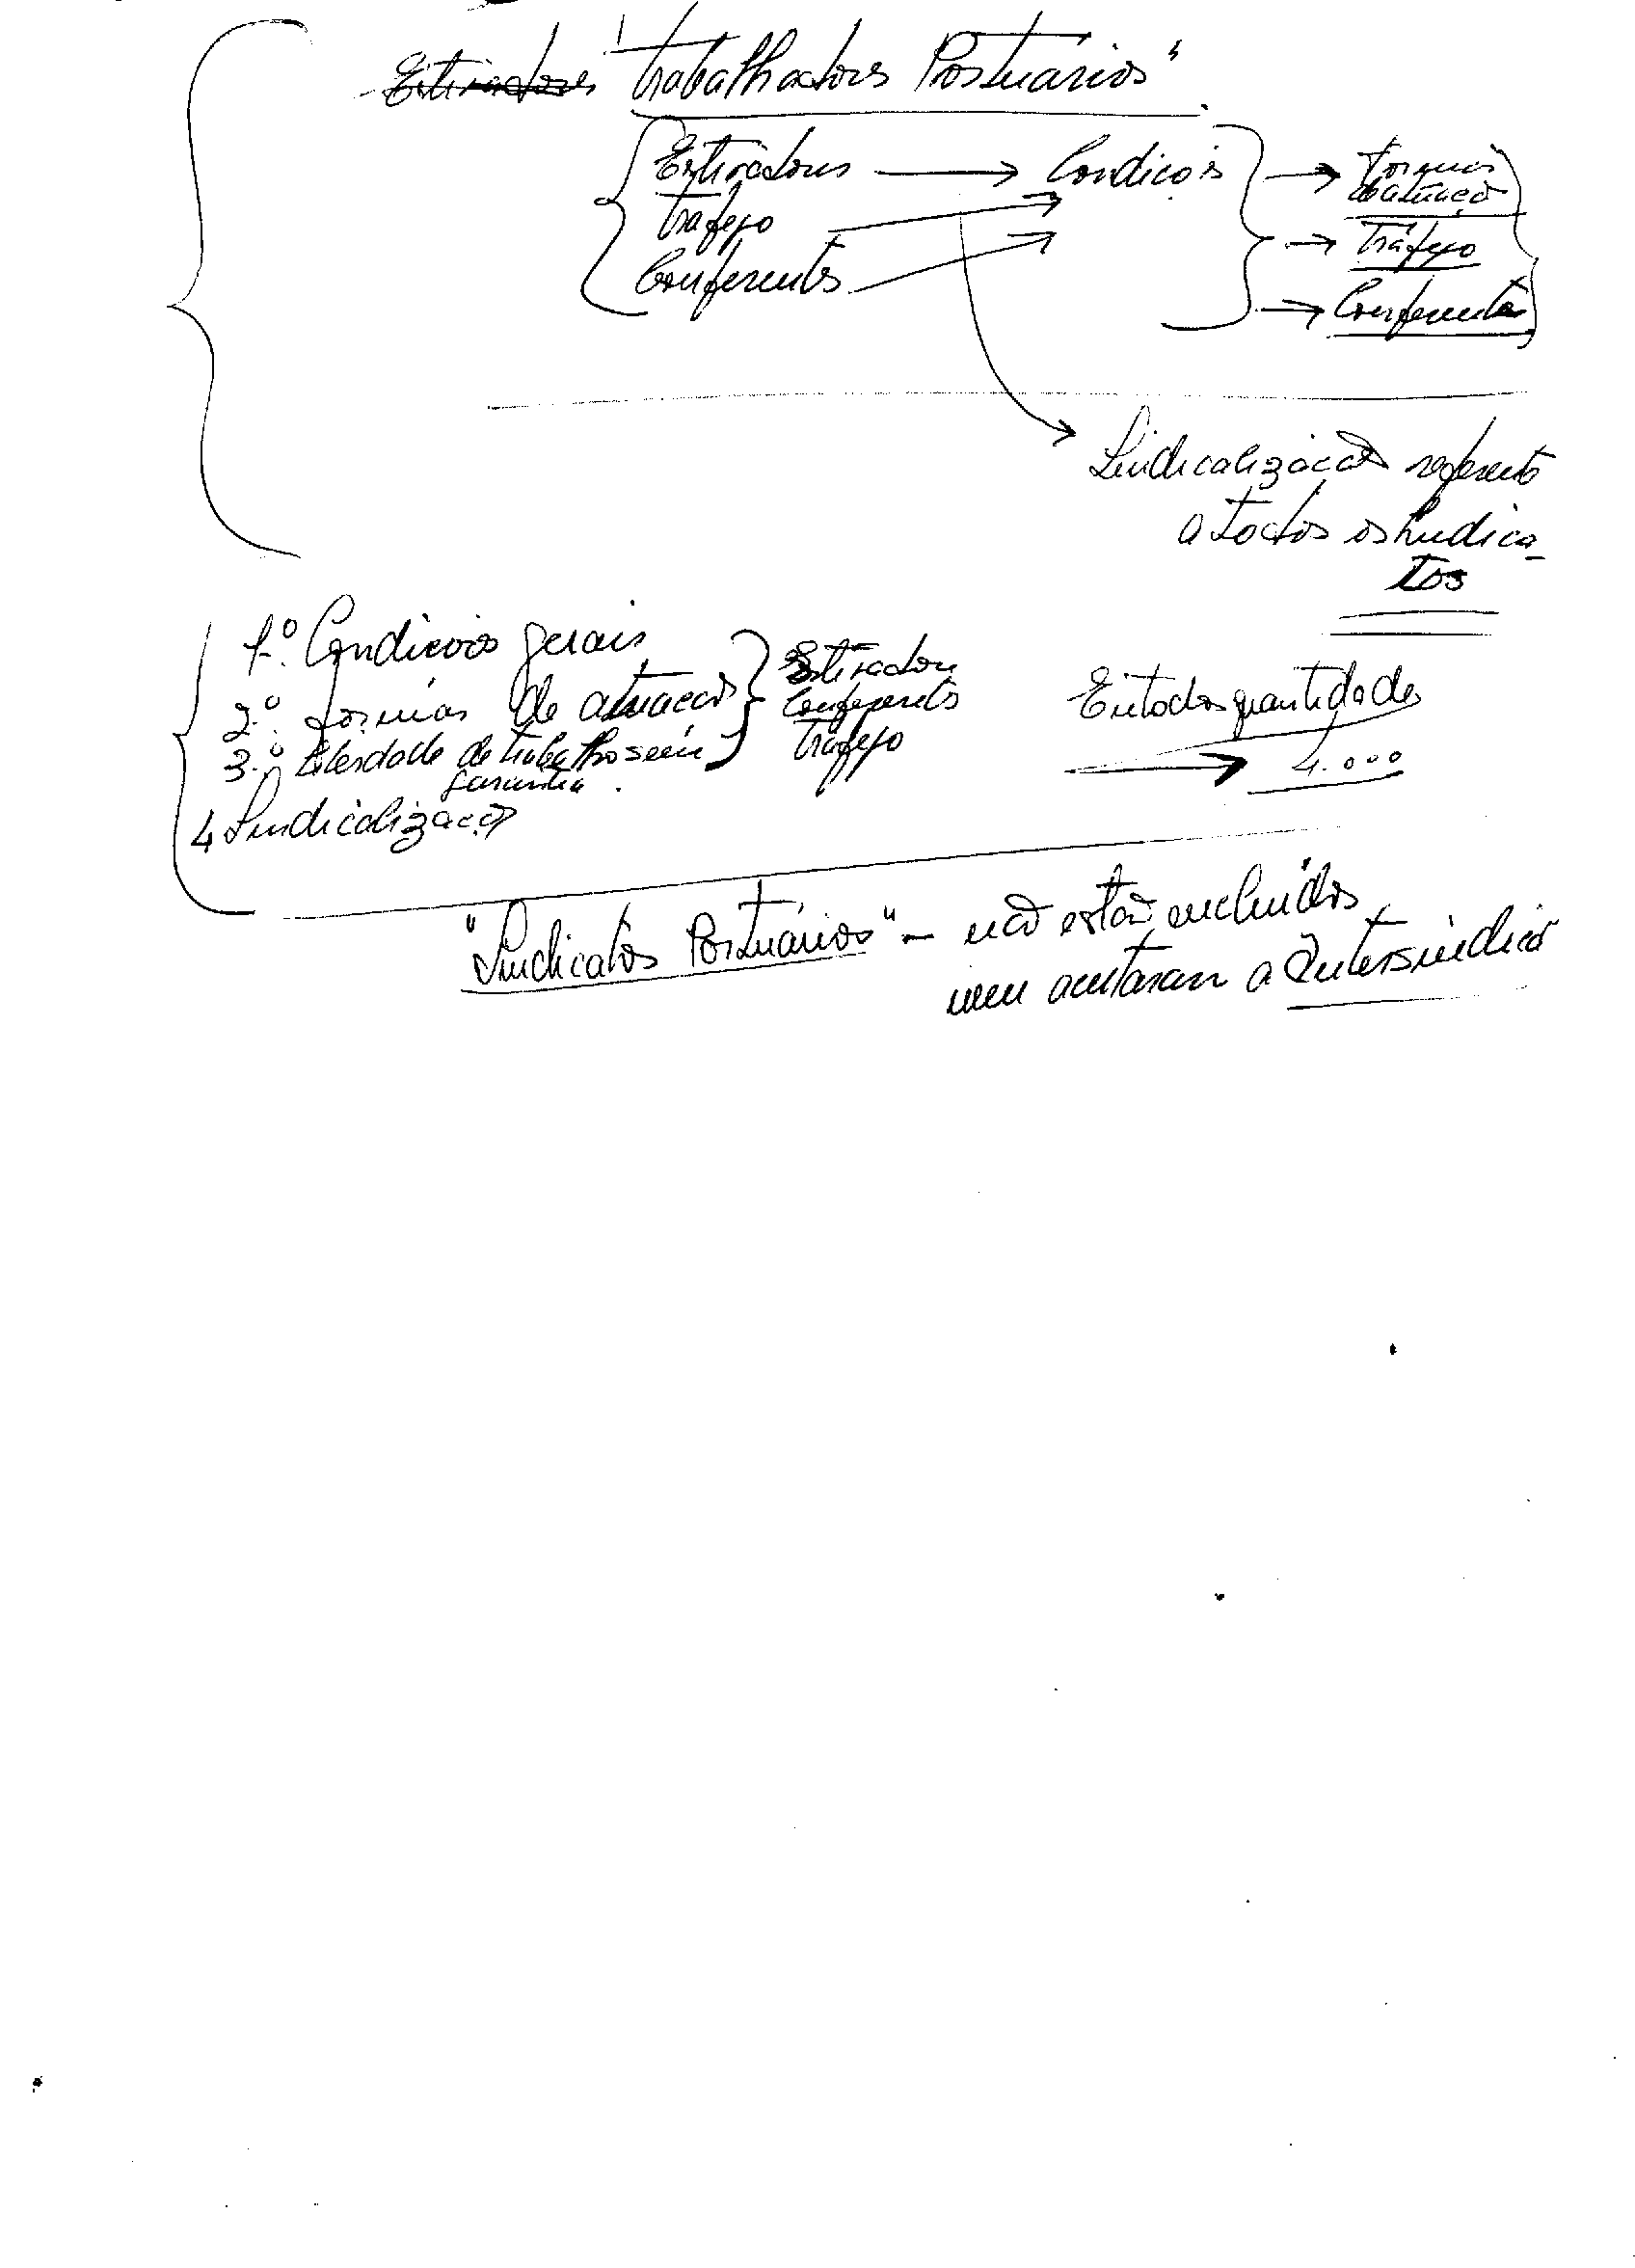 Estivadores "Trabalhadores Portuários"
Estivadores → Condições → formas
de atuação
Tráfego → Tráfego
Conferentes → Conferentes
Sindicalização referente
a todos os Sindica-
tos
1.º Condições gerais
2.º formas de atuação
3.º de trabalho sem
garantia.
4 Sindicalização
Estivadores
Conferentes
Tráfego
quantidades
→ 4.000
"Sindicatos Portuários" - não estão incluídos
nem aceitaram a Intersindical